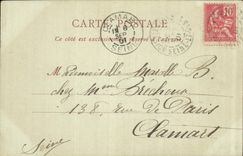 CARTE POSTALE
Ce côté est exclusivement réservé à l'adresse
CLAMART
SEINE
10
Mademoiselle Marcelle B.
chez Mme Bécheux
138, rue de Paris
Clamart
Seine